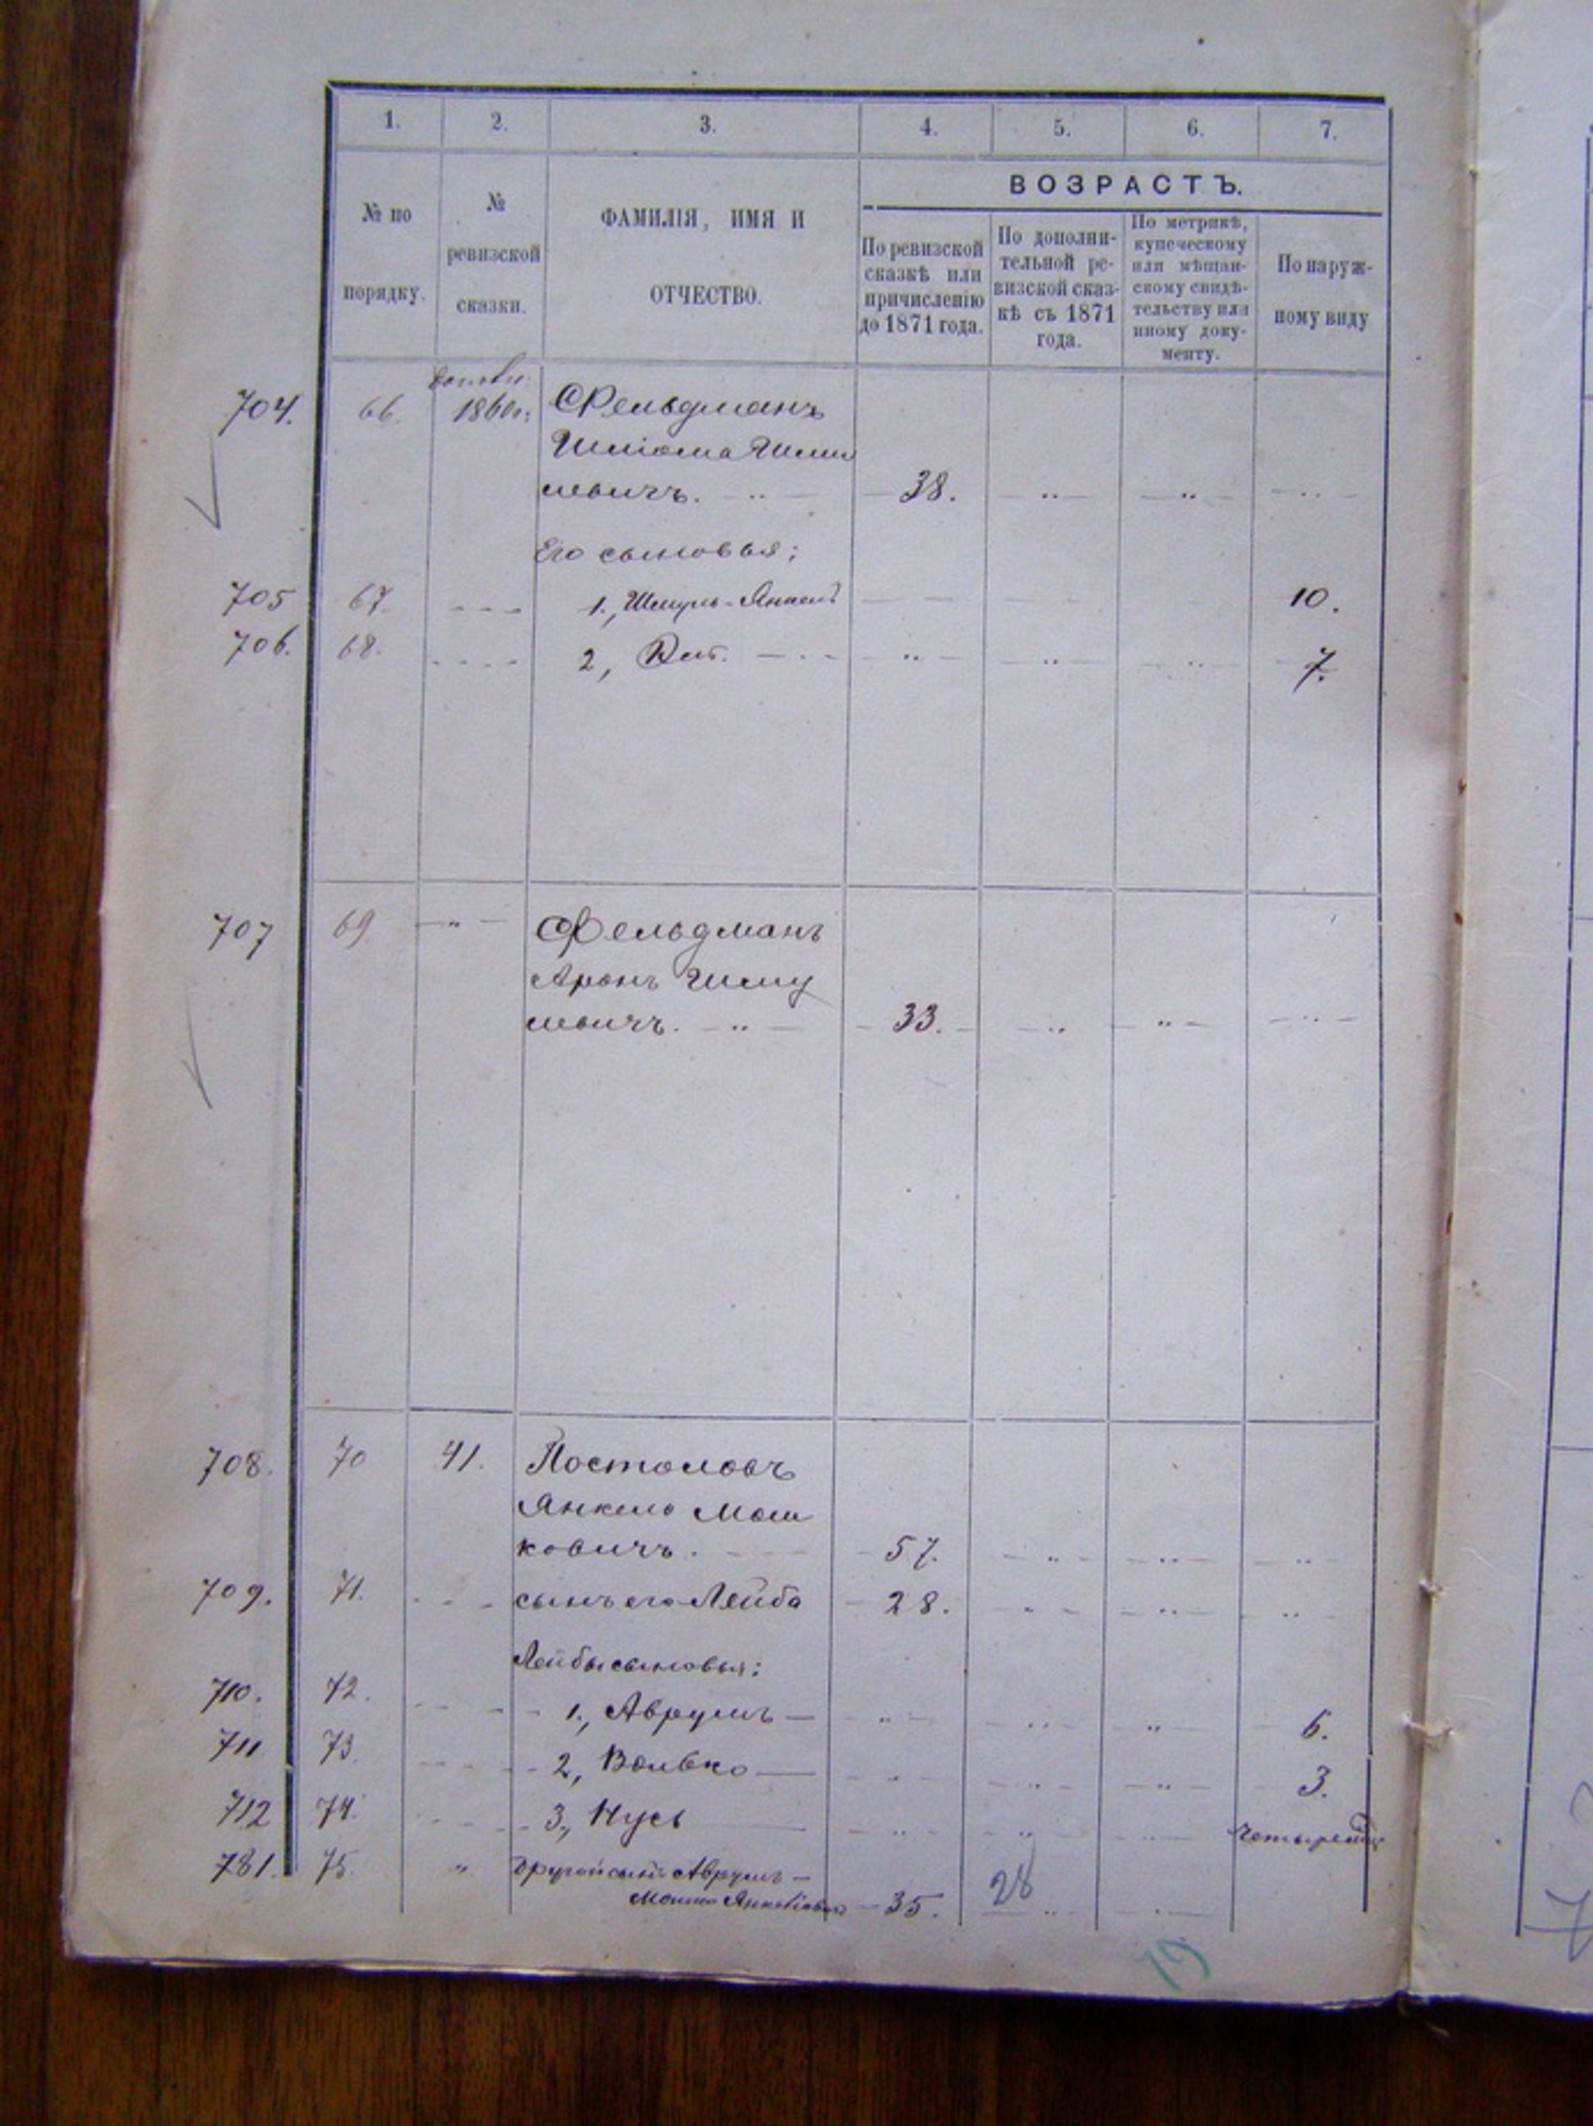 1. 2. 3. 4. 5. 6. 7.
№ по порядку.
№ ревизской сказки.
ФАМИЛІЯ, ИМЯ И
ОТЧЕСТВО.
ВОЗРАСТЪ.
По ревизской
сказкѣ или
причисленію
до 1871 года.
По дополни-
тельной ре-
визской сказ-
кѣ съ 1871
года.
По метрикѣ,
купеческому
или мѣщан-
скому свидѣ-
тельству или
иному доку-
менту.
По наруж-
ному виду
704. 66. 1860г. Фельдманъ
Шліома Шму
левичъ. 38.
Его сыновья;
705 67. 1., Шмуль-Янкель 10.
706. 68. 2, 7.
707 69 Фельдманъ
Аронъ Шму
левичъ. 33.
708. 70 41. Постоловъ
Янкель Мош
ковичъ. 57.
709. 71. сынъ его Лейба 28.
Лейбы сыновья:
710. 72. 1., Аврумъ 6.
711 73. 2, Волько 3.
712 74. 3., Нусь
781. 75. " Другой сынъ Аврумъ-
Мошко Янкелевъ 35. 28
19